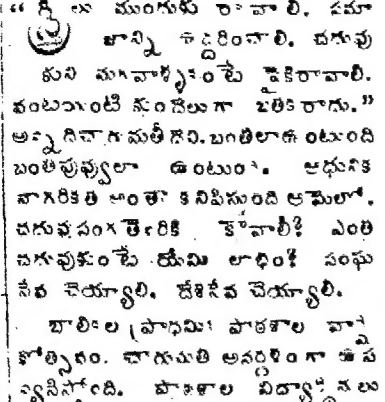 “ స్త్రీలు ముందుకు రావాలి. సమా
జాన్ని ఉద్ధరించాలి. చదువు
కుని మగవాళ్ళకంటే పైకిరావాలి.
వంటయింటి కుందేలుగా బతికి రాదు.”
అన్నది చారుమతీదేవి. బంతిలా ఉంటుంది
బంతిపువ్వులా ఉంటుంది. ఆధునిక
నాగరికత అంతా కనిపిస్తుంది ఆమెలో.
చదువు సంగతెవరికి కావాలి? ఎంత
చదువుకుంటే యేమి లాభం? సంఘ
సేవ చెయ్యాలి. దేశసేవ చెయ్యాలి.
బాలికల ప్రాథమిక పాఠశాల వార్షి
కోత్సవం. చారుమతి అనర్గళంగా ఉప
న్యసిస్తోంది. పాఠశాల విద్యార్థినులు